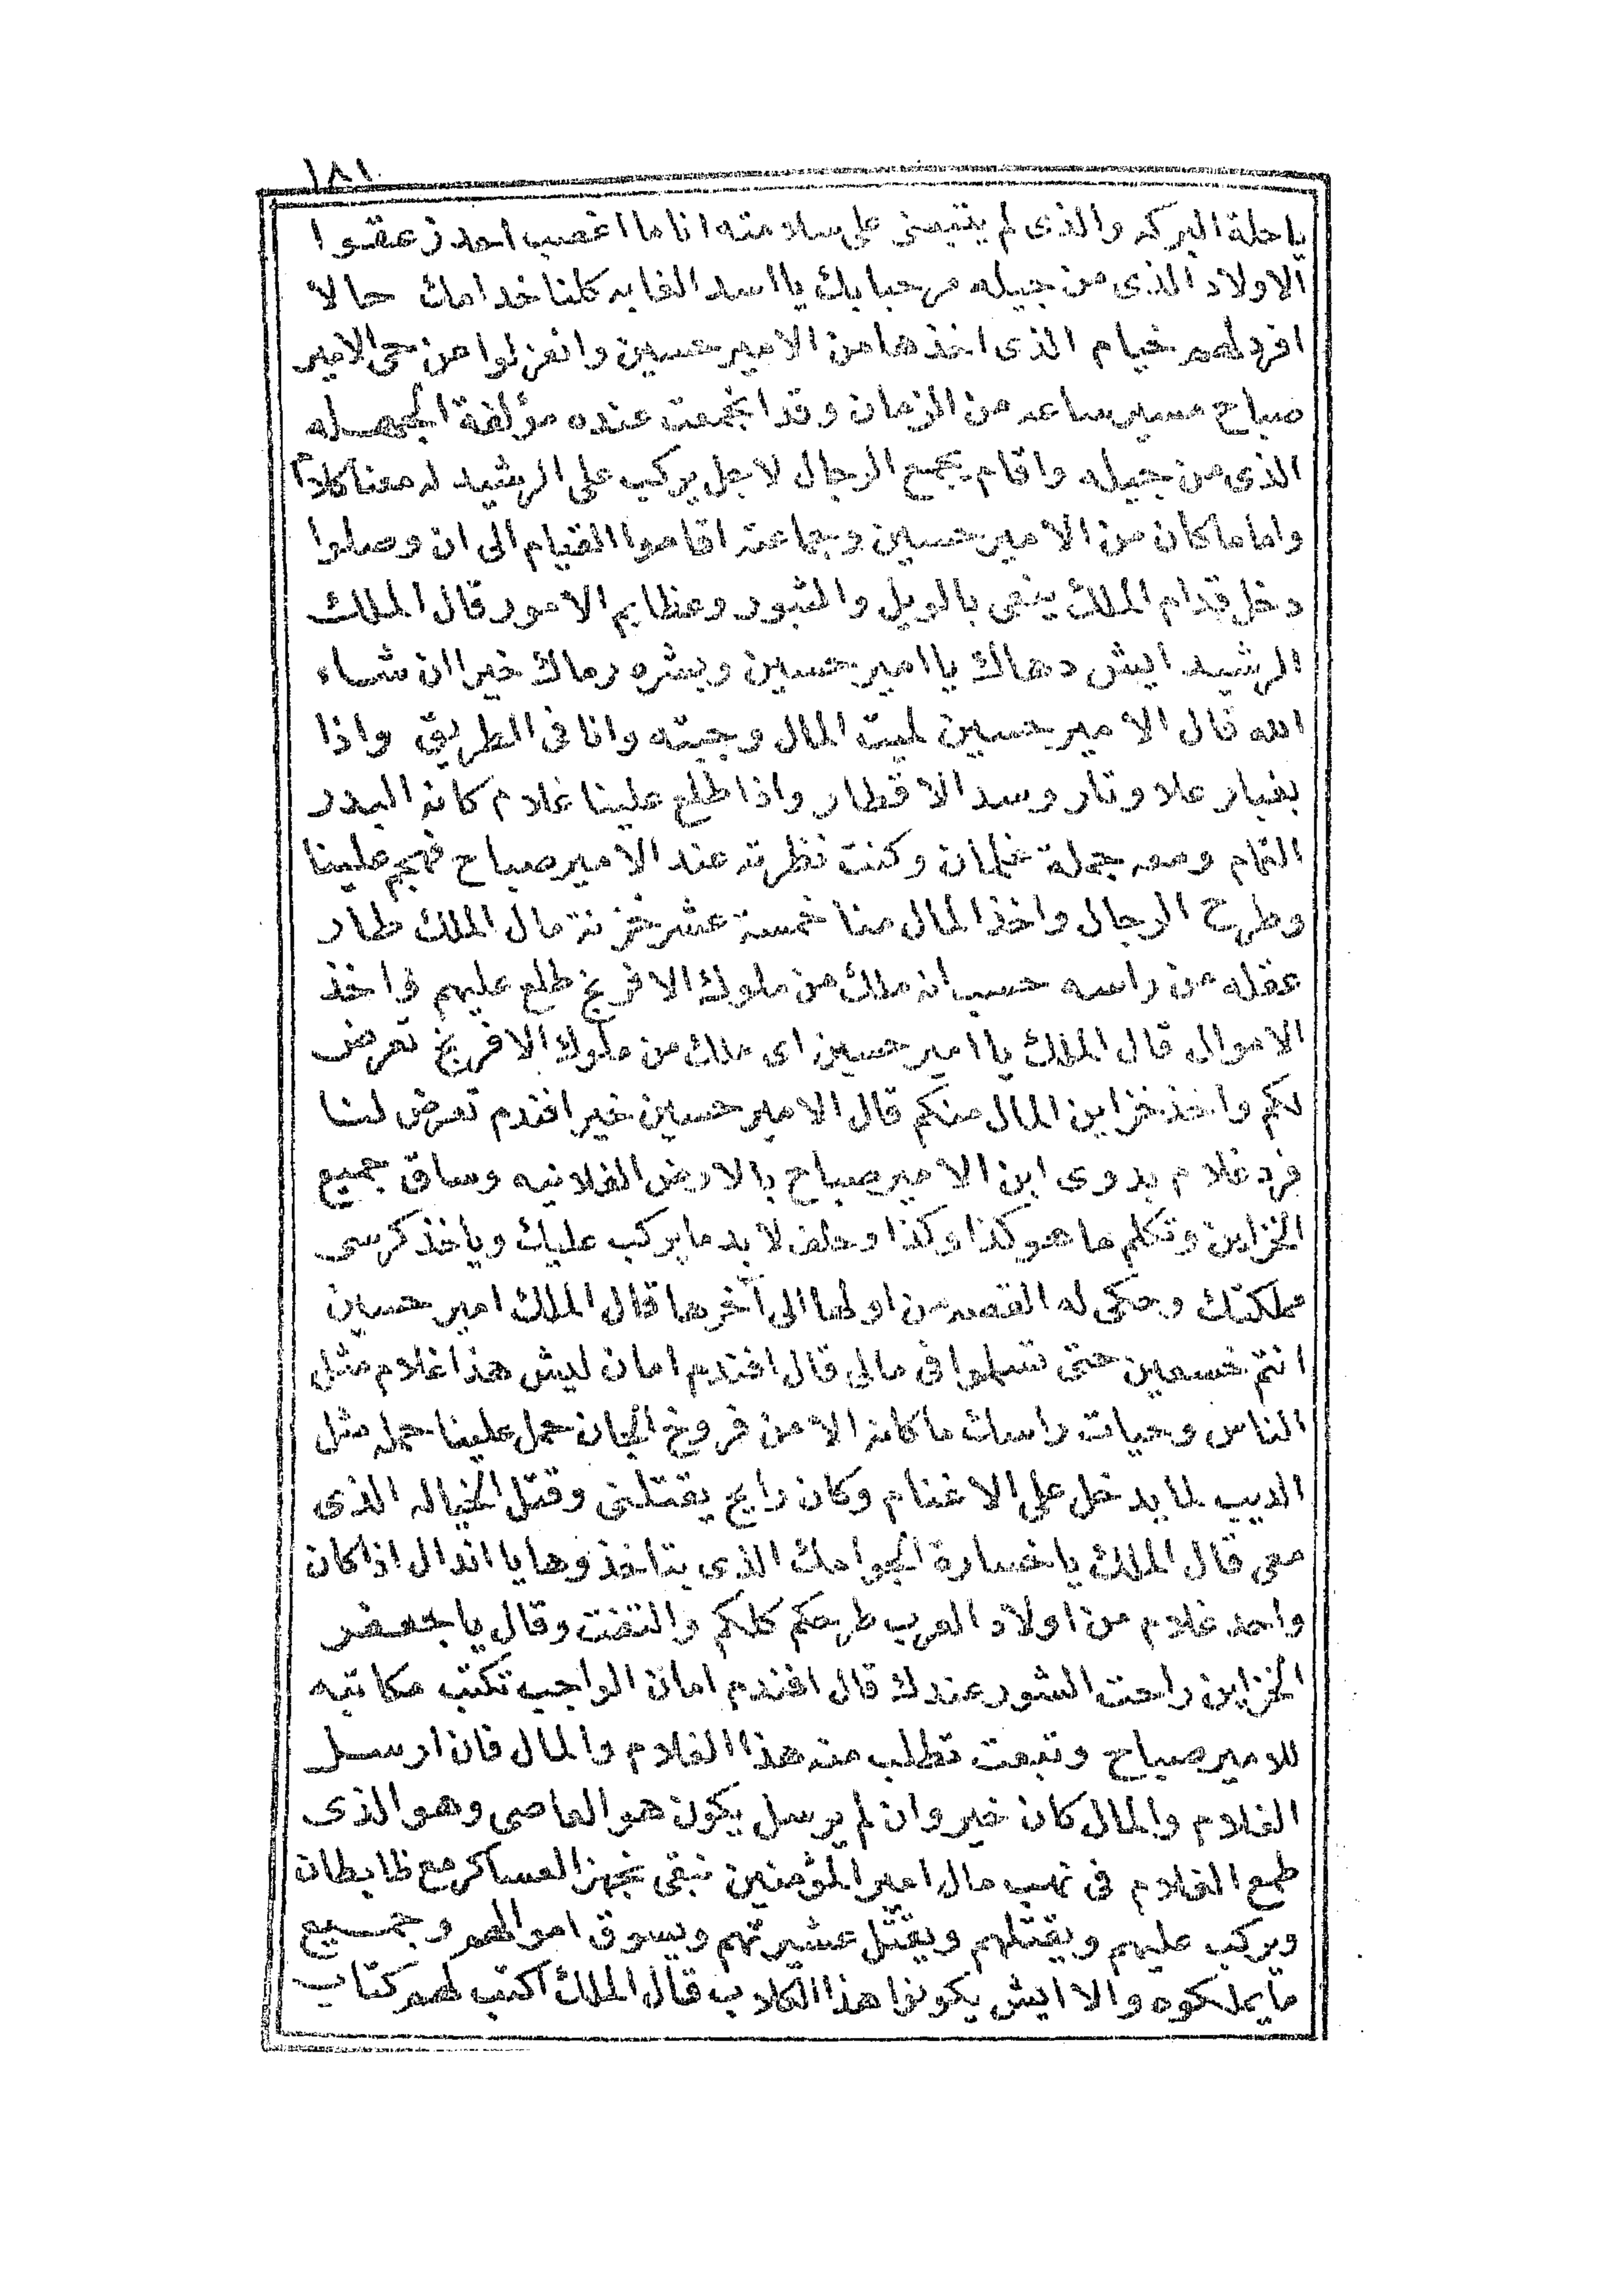 ١٨١
ياحلة البركه والذى لم يتيصنى على سلامته انا ما اغصب احد زعقوا
الاولاد الذى من جيله مرحبا بك يا اسد الغابه كلنا خدامك حالا
افرد لهم خيام الذى اخذها من الامير حسين وانعزلوا عن حى الامير
صباح مسير ساعه من الزمان وقد اتجمعت عنده مؤلفة الجهله
الذى من جيله واقام يجمع الرجال لاجل يركب على الرشيد له معنا كلام
واما ما كان من الامير حسين وجماعته اقاموا القيام الى ان وصلوا
دخل قدام الملك ينعى بالويل والثبور وعظايم الامور قال الملك
الرشيد ايش دهاك يا امير حسين وبشره رماك خيرا ان شاء
الله قال الامير حسين لميت المال وجيته وانا فى الطريق واذا
بغبار علا وتار وسد الاقطار واذا طلع علينا غلام كانه البدر
التمام ومعه جملة غلمان وكنت نظرته عند الامير صباح فهجم علينا
وطرح الرجال واخذ المال منا خمسة عشر خزنة مال الملك طار
عقله من راسه حسب انه ملك من ملوك الافرنج طلع عليهم واخذ
الاموال قال الملك يا امير حسين اى ملك من ملوك الافرنج تعرض
لكم واخذ خزاين المال منكم قال الامير حسين خير افندم تعرض لنا
فرد غلام بدوى ابن الامير صباح بالارض الفلانيه وساق جميع
الخزاين وتكلم ما هو كذا وكذا وحلف لا بد ما يركب عليك وياخذ كرسى
مملكتك وحكى له القصه من اولها الى آخرها قال الملك امير حسين
انتم خسعين حتى تسلموا فى مالى قال افندم امان ليش هذا غلام مثل
الناس وحيات راسك ما كانه الا من فروخ الجان حمل علينا حمله مثل
الديب لما يدخل على الاغنام وكان رايح يقتلنى وقتل الخياله الذى
معى قال الملك يا خسارة الجوامك الذى بتاخذوها يا اندال اذا كان
واحد غلام من اولاد العرب طرحكم كلكم والتفت وقال يا جعفر
الخزاين راحت الشور عندك قال افندم امان الواجب تكتب مكاتبه
للامير صباح وتبعت تطلب منه هذا الغلام والمال فان ارسل
الغلام والمال كان خير وان لم يرسل يكون هو العاصى وهو الذى
طمع الغلام فى نهب مال امير المؤمنين نبقى نجهز العساكر مع ظابطان
ويركب عليهم ويقتلهم ويقتل عشيرتهم ويسوق اموالهم وجميع
ما يملكوه والا ايش يكونوا هذا الكلاب قال الملك اكتب لهم كتاب